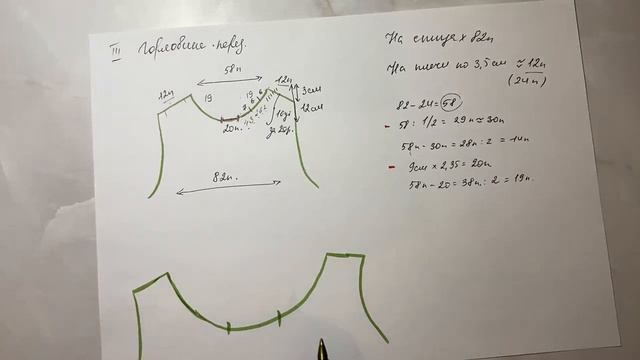 III Горловине перед.
58п
12п
12п
19
19
3см
12см
20п
за 20р.
82п.
На спицах 82п
На плечи по 3,5см ≈ 12п
(24п)
82-24=58
- 58 : 1/2 = 29п ≈ 30п
58п - 30п = 28п : 2 = 14п
- 9см × 2,35 = 20п
58п - 20 = 38п : 2 = 19п.